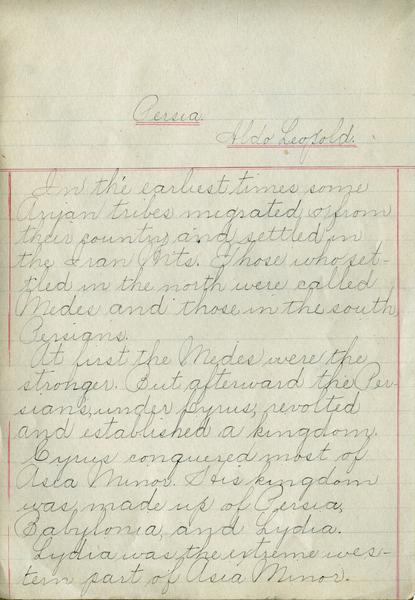 Persia.
Aldo Leopold.
In the earliest times some
Aryan tribes migrated from
their country and settled in
the Iran Mts. Those who set-
tled in the north were called
Medes and those in the south,
Persians.
At first the Medes were the
stronger. But afterward the Per-
sians, under Cyrus, revolted
and established a kingdom.
Cyrus conquered most of
Asia Minor. His kingdom
was, made up of Persia,
Babylonia, and Lydia.
Lydia was the extreme wes-
tern part of Asia Minor.